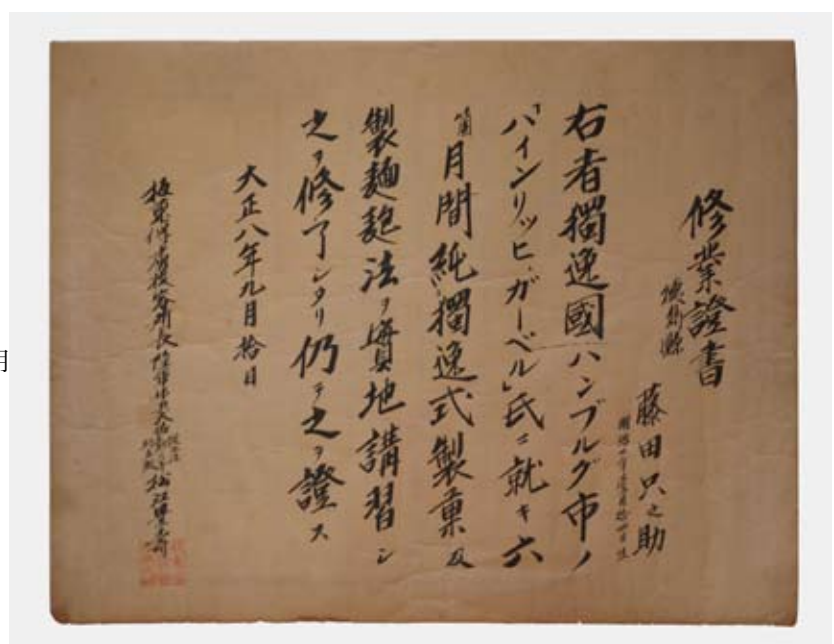 修業證書
德島縣
藤田只之助
右者獨逸國ハンブルグ市ノ
「ハインリッヒ、ガーベル」氏ニ就キ六
箇月間純獨逸式製菓及
製麺麭法ヲ實地講習シ
之ヲ修了シタリ仍テ之ヲ證ス
大正八年九月拾日
板東俘虜收容所長陸軍歩兵大佐
松江豊壽
月